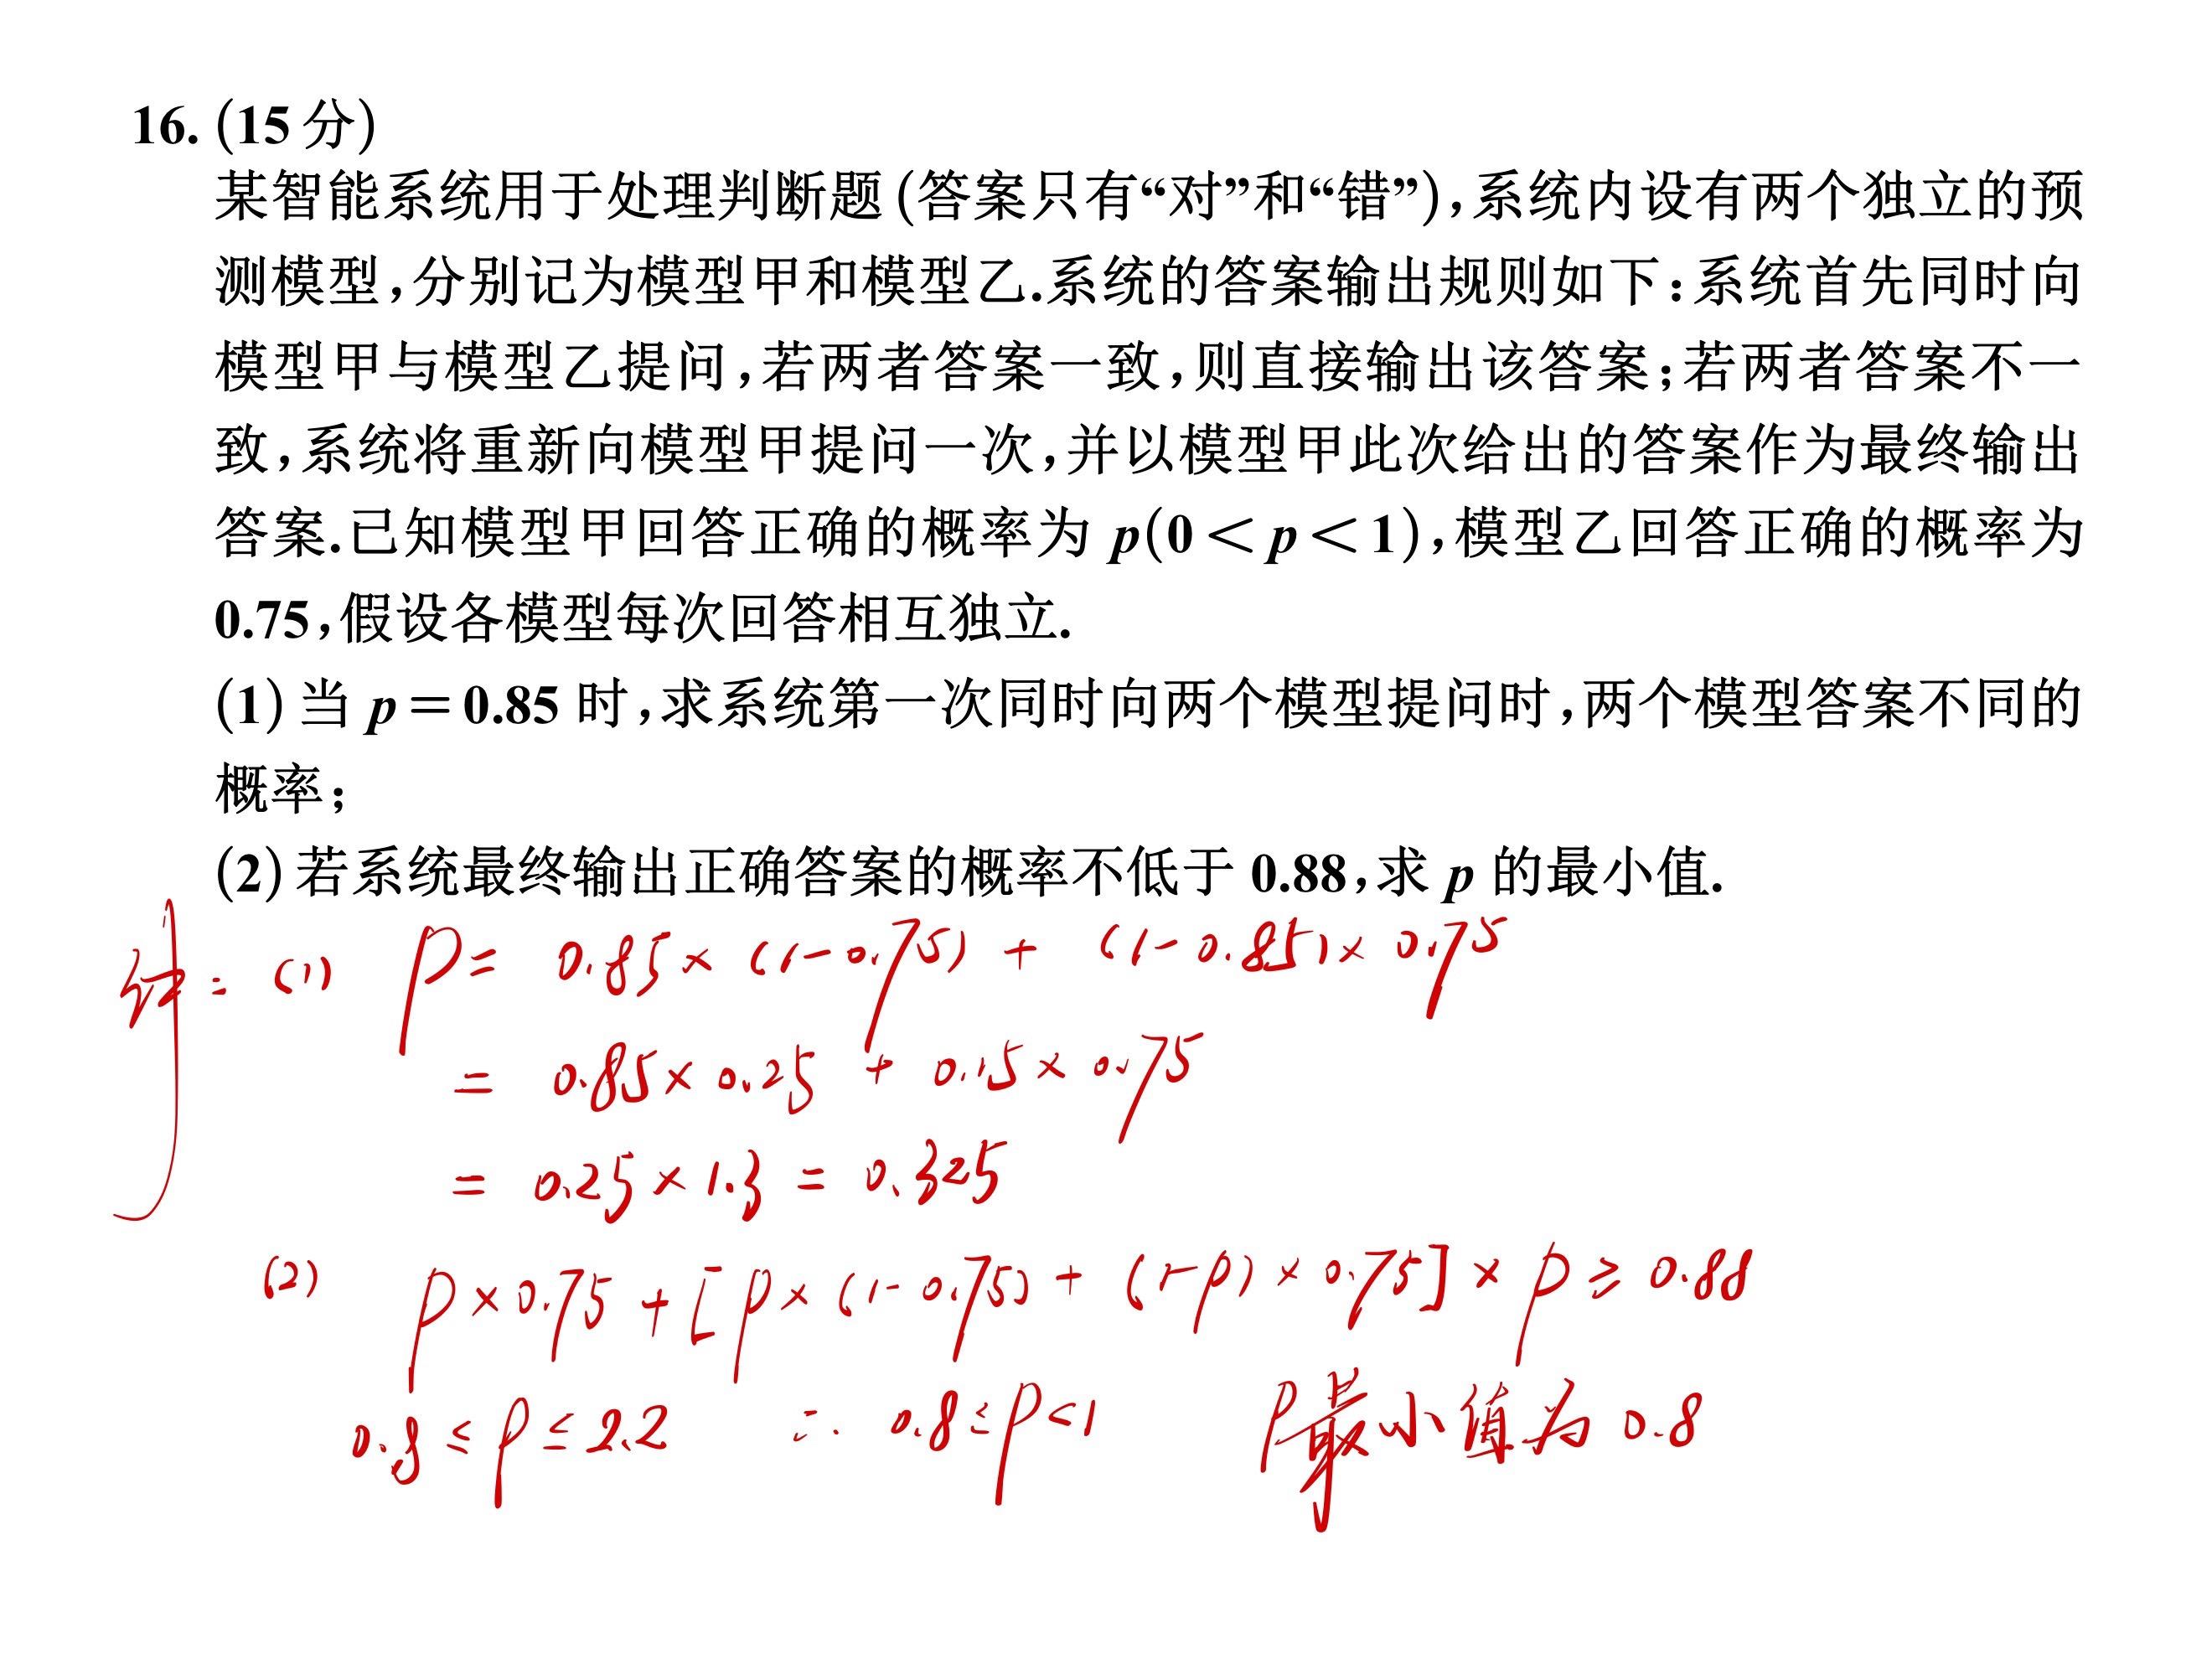 16. (15分)
某智能系统用于处理判断题(答案只有“对”和“错”),系统内设有两个独立的预
测模型,分别记为模型甲和模型乙.系统的答案输出规则如下:系统首先同时向
模型甲与模型乙提问,若两者答案一致,则直接输出该答案;若两者答案不一
致,系统将重新向模型甲提问一次,并以模型甲此次给出的答案作为最终输出
答案.已知模型甲回答正确的概率为 p(0<p<1),模型乙回答正确的概率为
0.75,假设各模型每次回答相互独立.
(1)当 p=0.85 时,求系统第一次同时向两个模型提问时,两个模型答案不同的
概率;
(2)若系统最终输出正确答案的概率不低于 0.88,求 p 的最小值.
解: (1) P= 0.85×(1-0.75) + (1-0.85)×0.75
= 0.85×0.25 + 0.15×0.75
= 0.25×1.3 = 0.325
(2) p×0.75 + [p×(1-0.75) + (1-p)×0.75]×p ≥ 0.88
0.8 ≤ p ≤ 2.2 ∴ 0.8≤p<1 p最小值为0.8